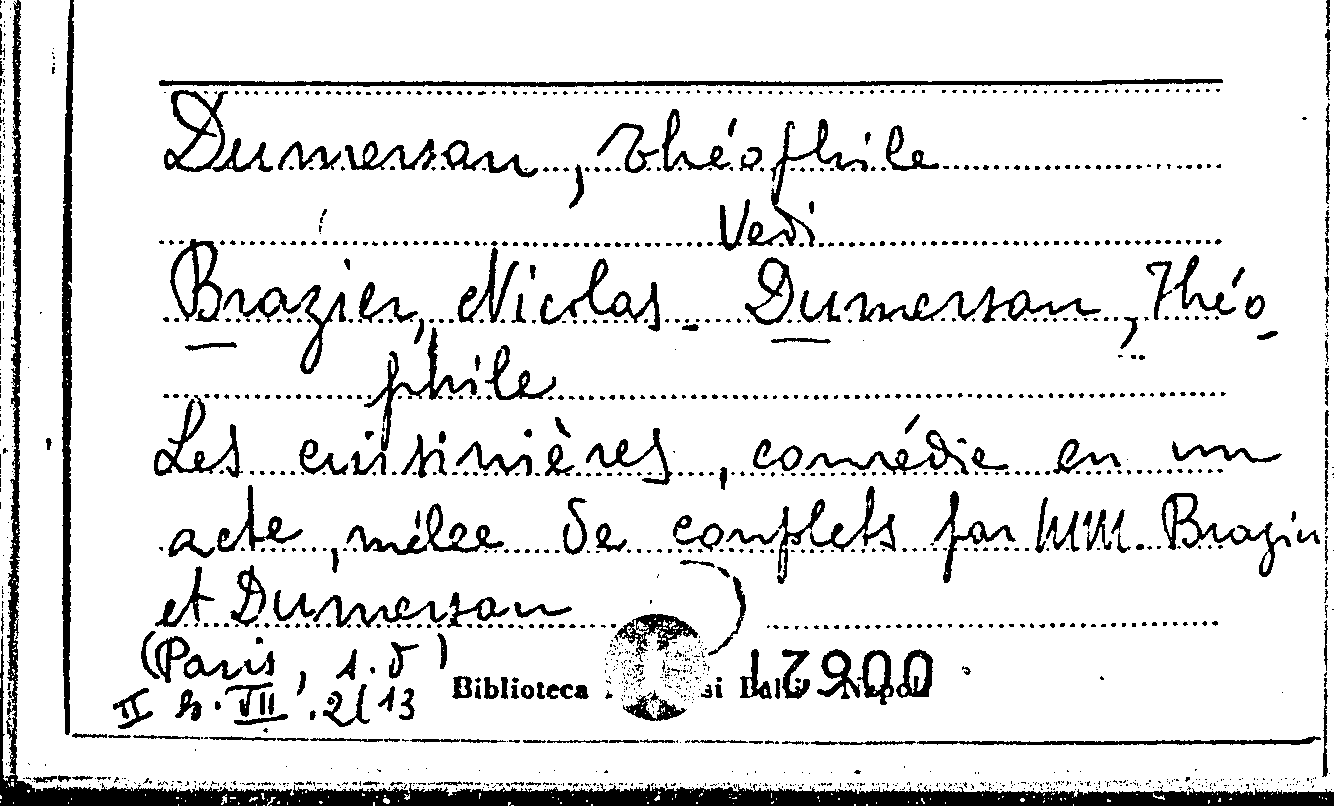 Dumersan, Théophile
Vedi
Brazier, Nicolas - Dumersan, Théo-
phile
Les cuisinières, comédie en un
acte, mêlée de couplets par MM. Brazier
et Dumersan
(Paris, s.d)
II h. VII .2(13
Biblioteca si Napoli